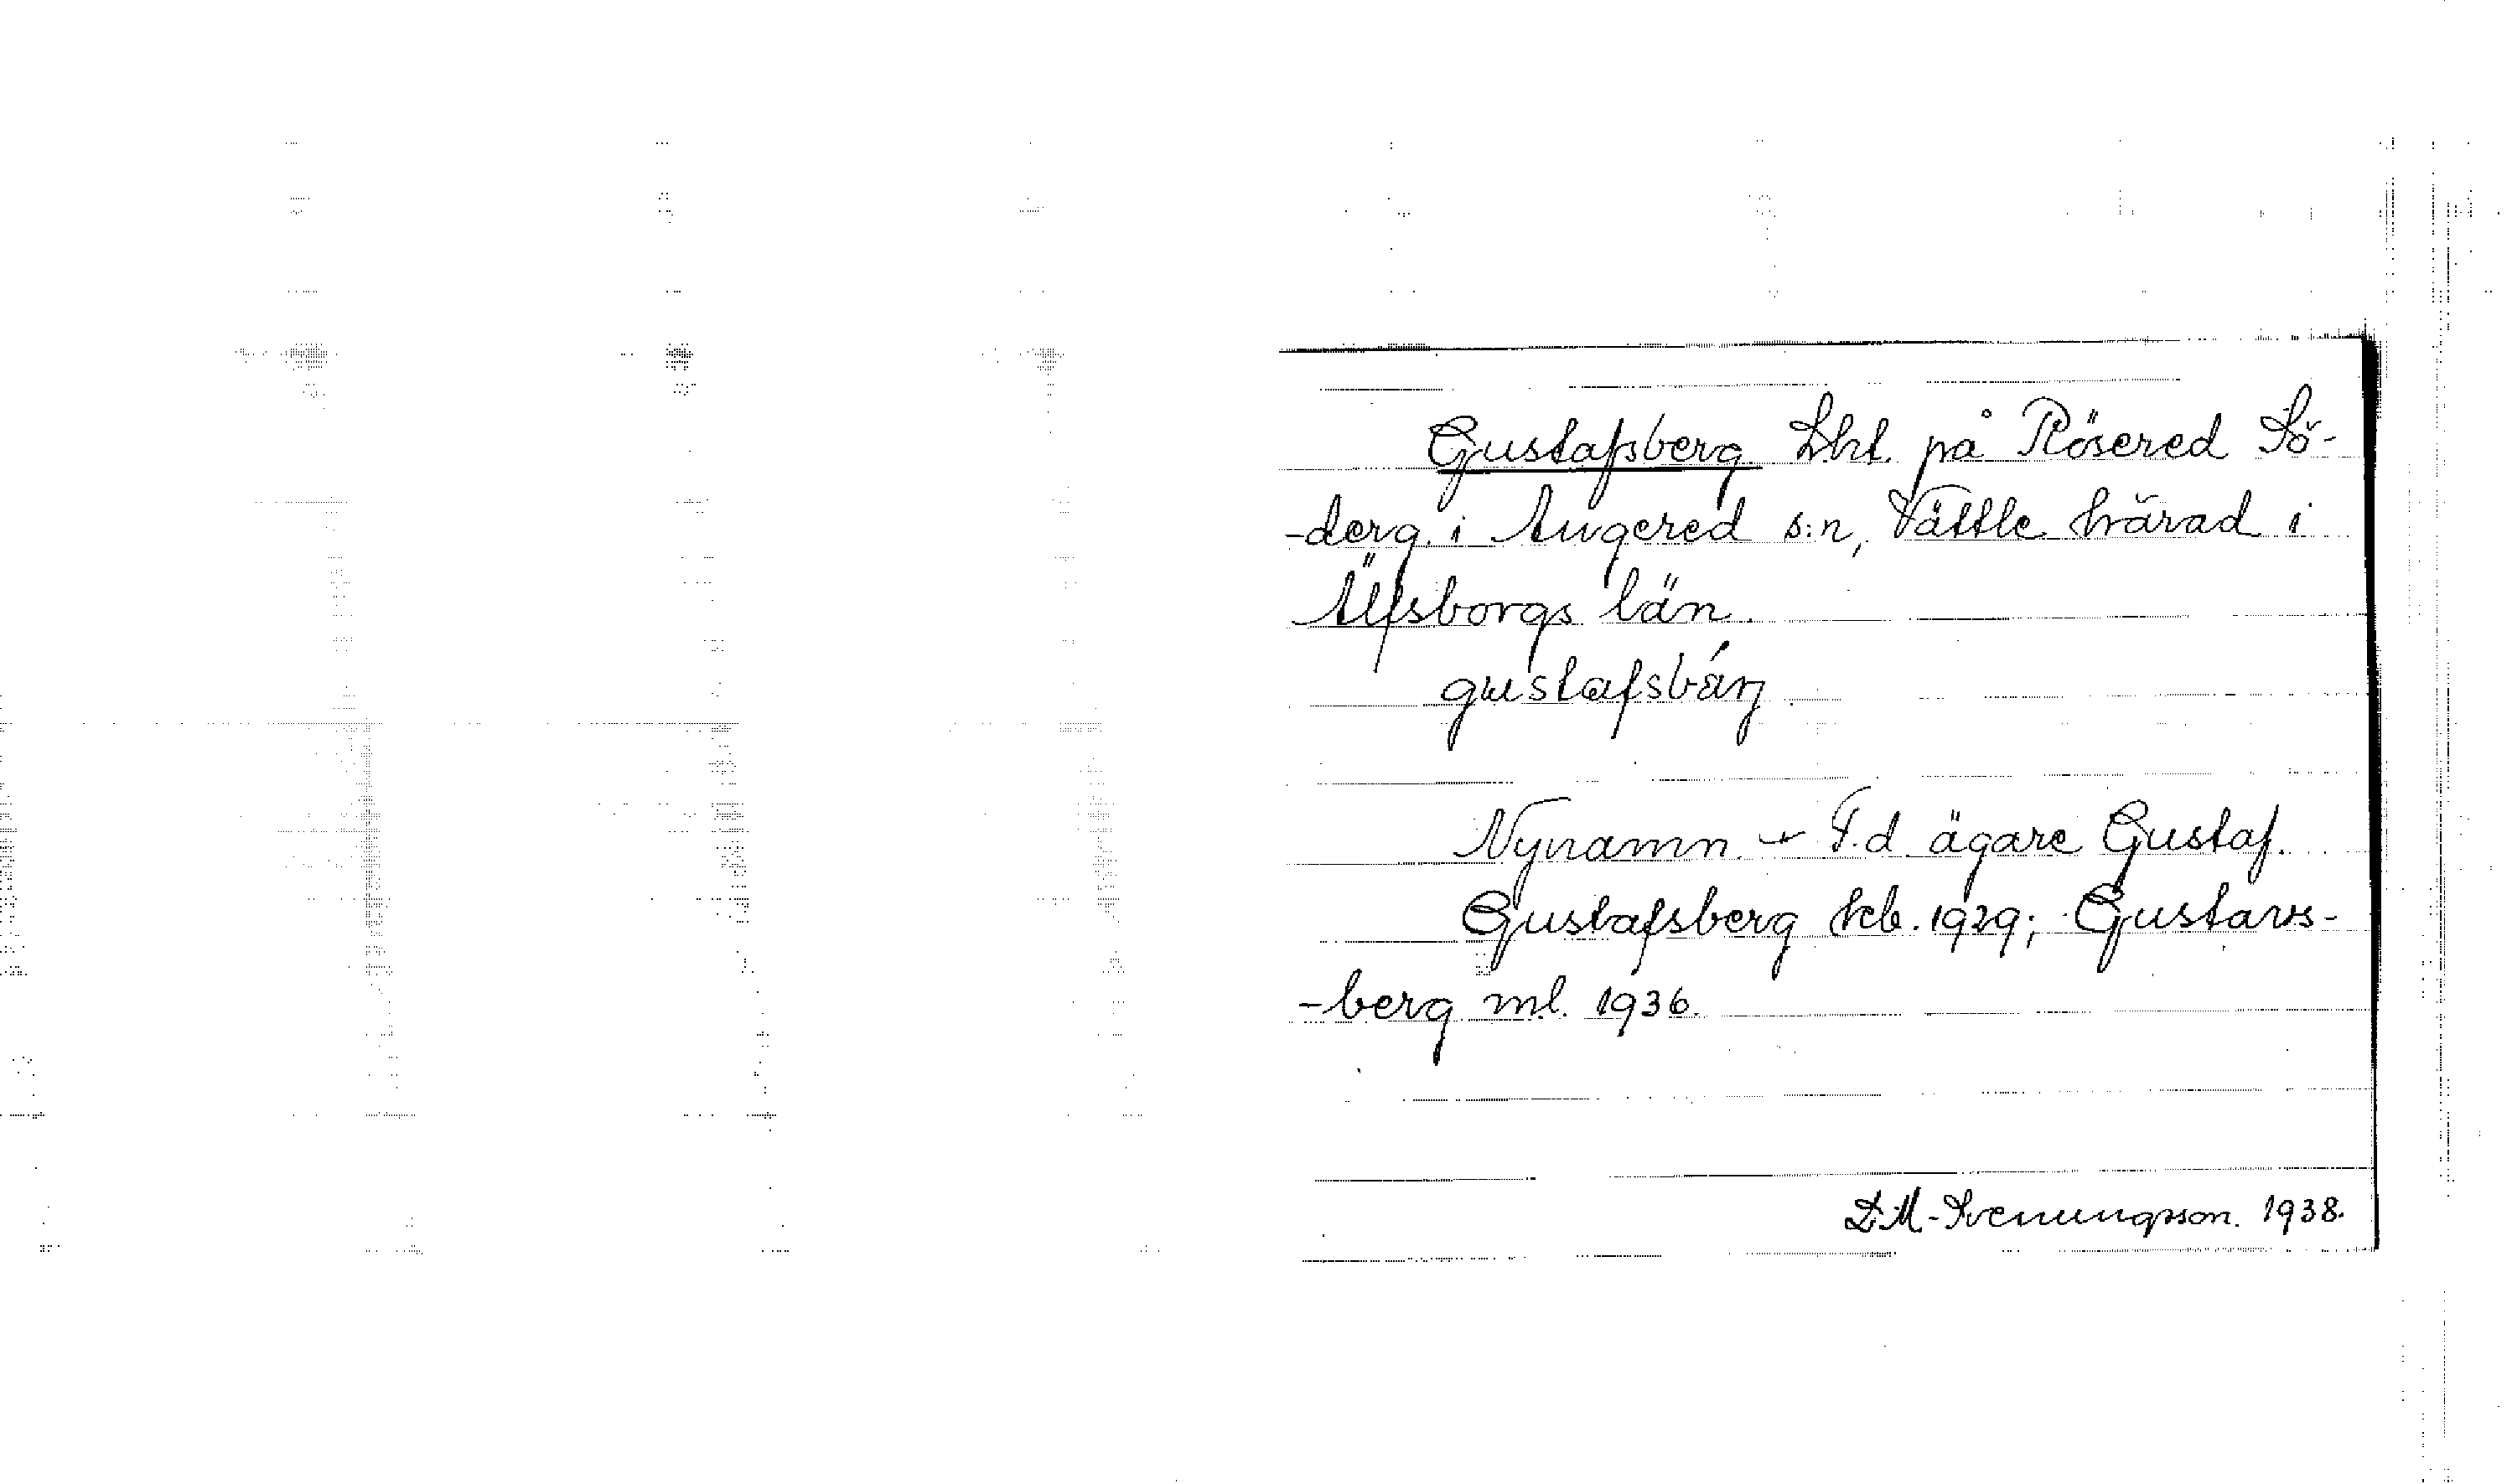 Gustafsberg Lht. på Rösered Sö-
-derg. i Angered s:n, Vättle härad i
Älfsborgs län.
gustafsbárj
Nynamn. - F.d. ägare Gustaf.
Gustafsberg kb. 1929; Gustavs-
-berg ml. 1936.
D.M-Svenungsson. 1938.